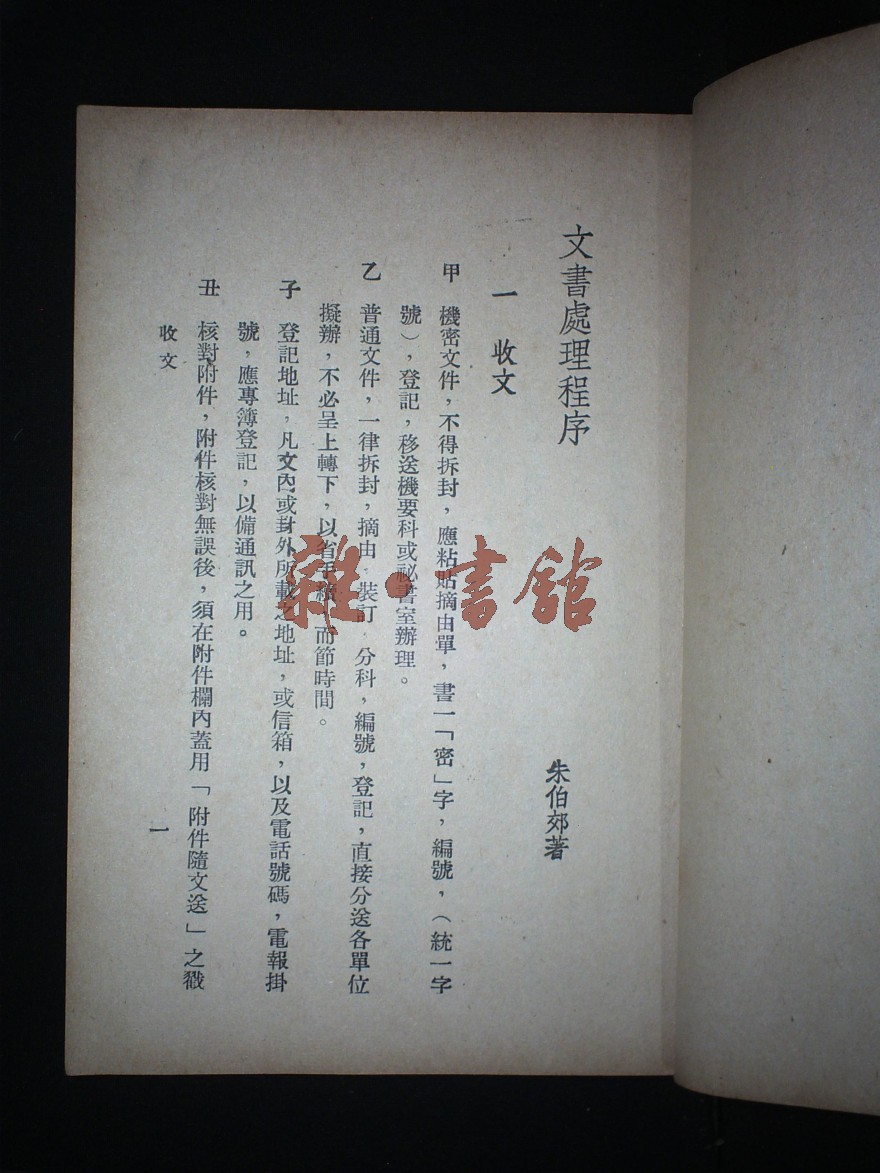 文書處理程序
朱伯郊著
一 收文
甲 機密文件，不得拆封，應粘貼摘由單，書一「密」字，編號，（統一字
號），登記，移送機要科或祕書室辦理。
乙 普通文件，一律拆封，摘由，裝訂，分科，編號，登記，直接分送各單位
擬辦，不必呈上轉下，以省手續，而節時間。
子 登記地址，凡文內或封外所載之地址，或信箱，以及電話號碼，電報掛
號，應專簿登記，以備通訊之用。
丑 核對附件，附件核對無誤後，須在附件欄內蓋用「附件隨文送」之戳
收文
一
雜·書館